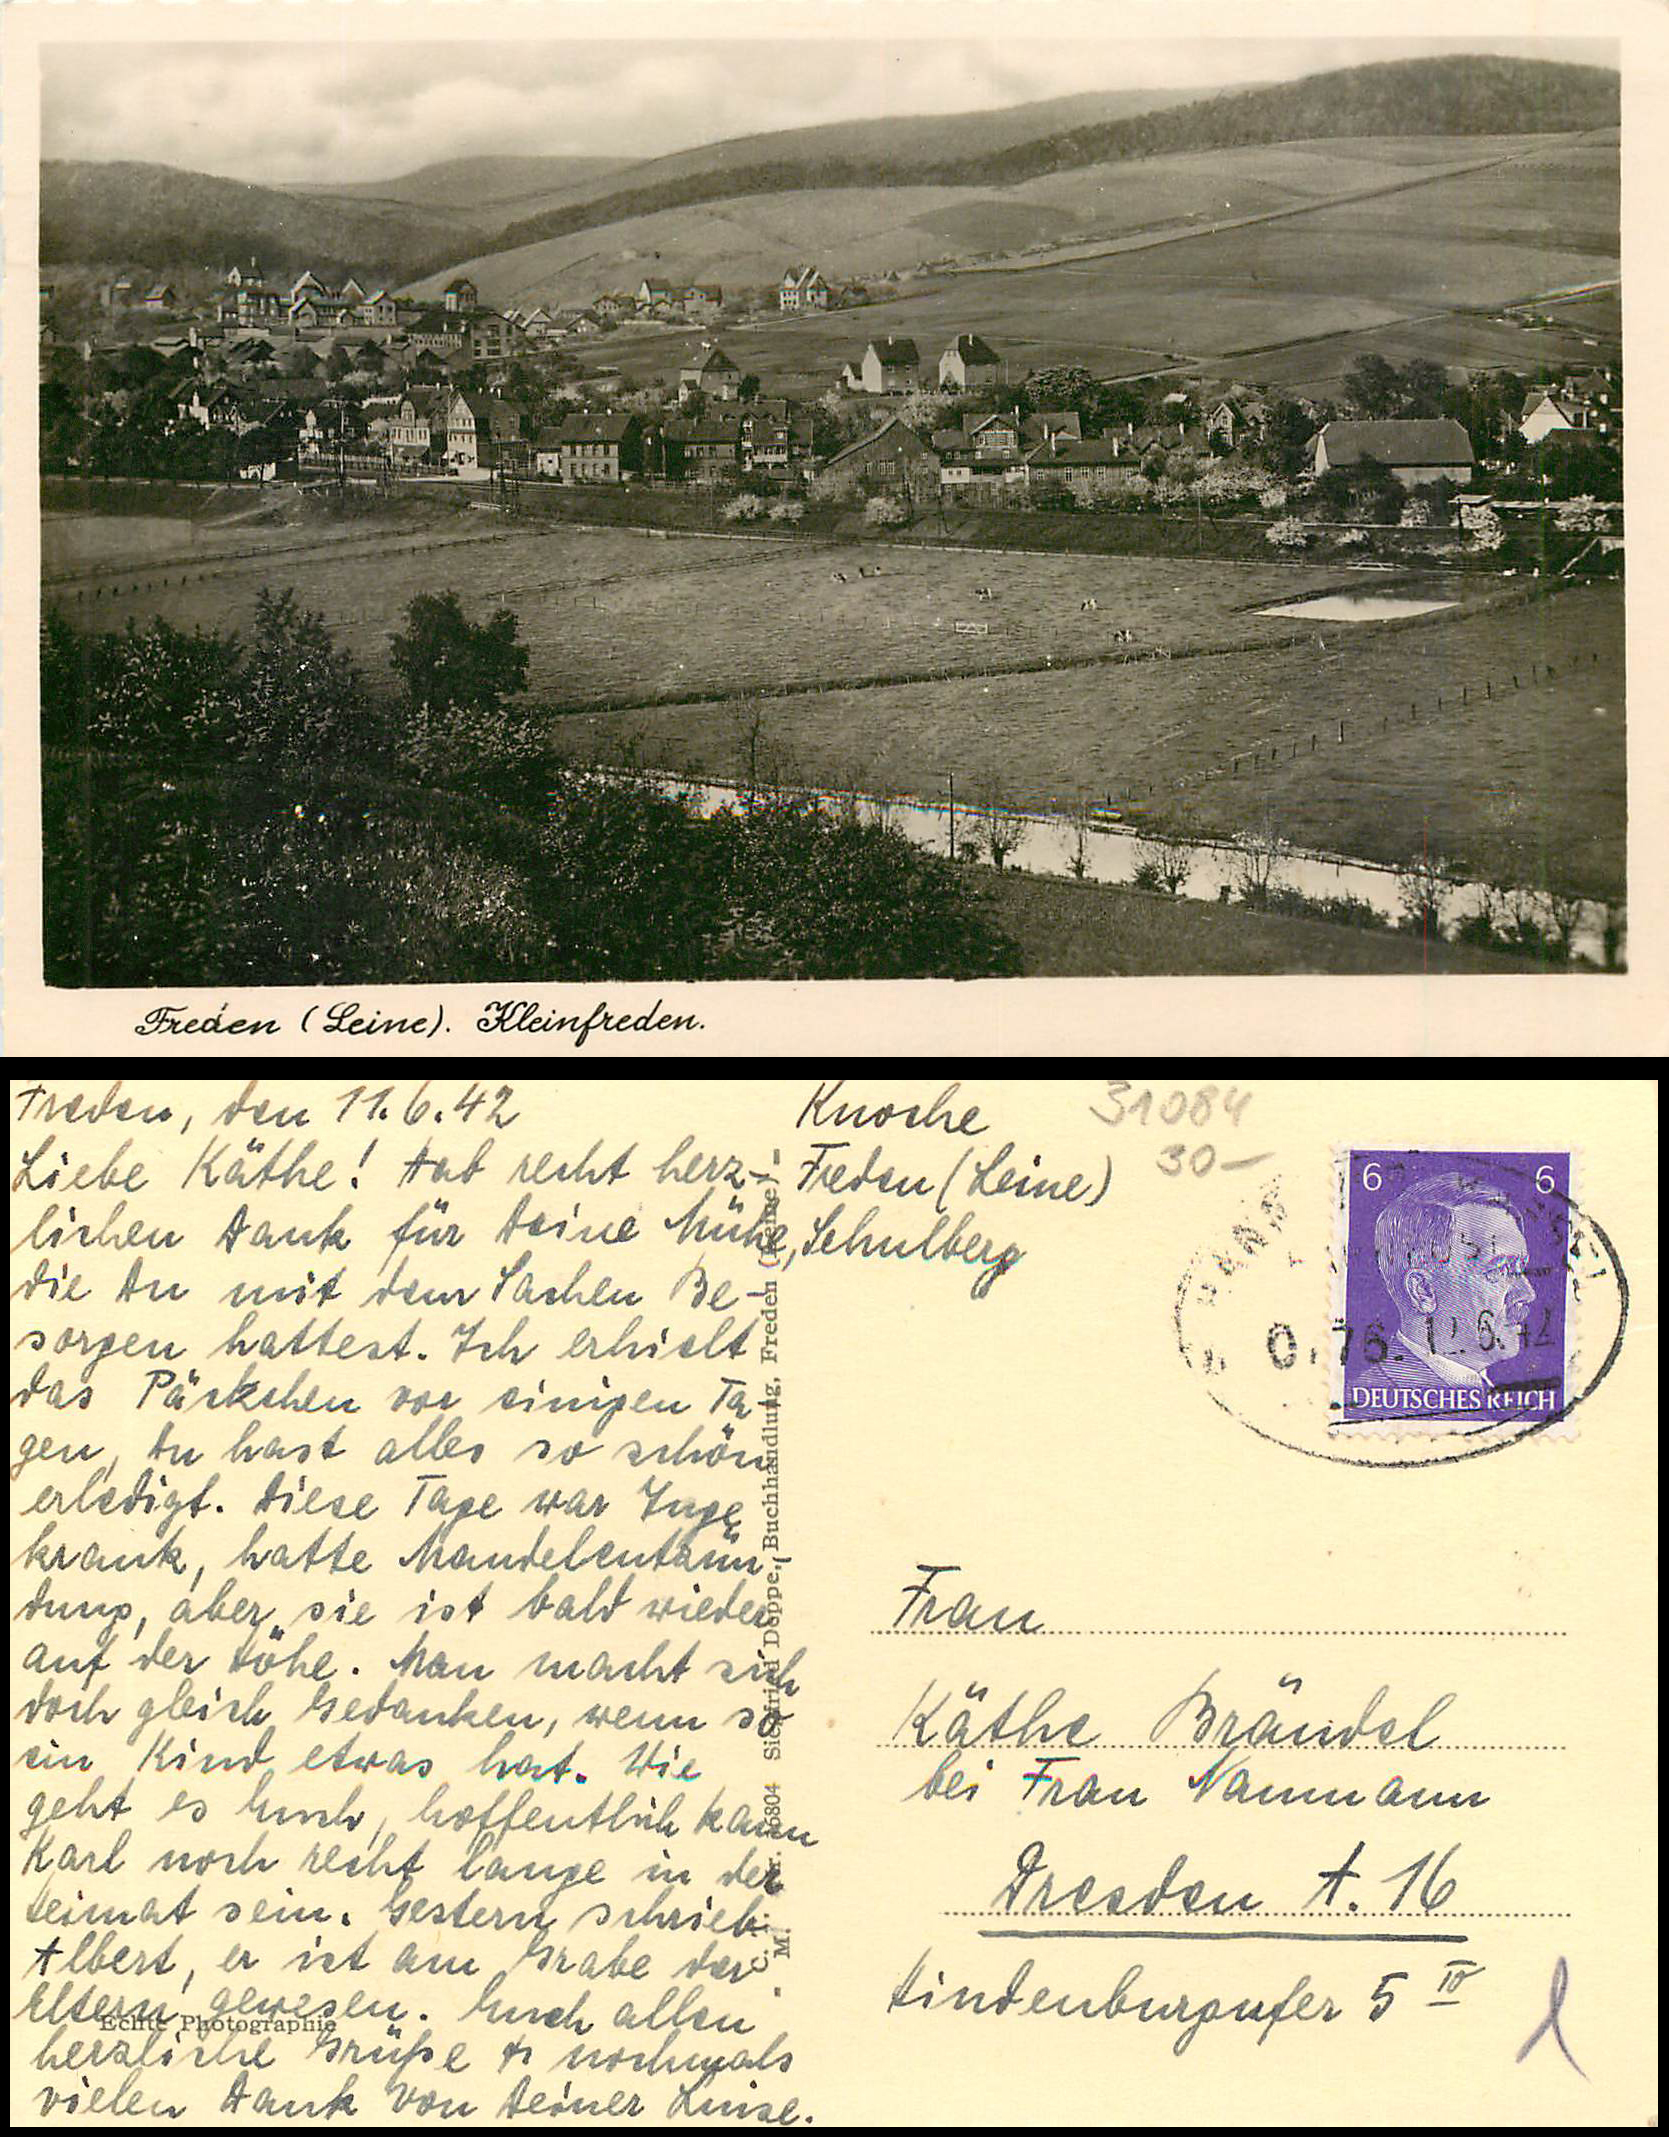 Freden (Leine). Kleinfreden.
Freden, den 11.6.42
Liebe Käthe! Hab recht herz-
lichen Dank für Deine Mühe,
die Du mit dem Sachen Be-
sorgen hattest. Ich erhielt
das Päckchen vor einigen Ta-
gen, Du hast alles so schön
erledigt. Diese Tage war Inge
krank, hatte Mandelentzün-
dung, aber sie ist bald wieder
auf der Höhe. Man macht sich
doch gleich Gedanken, wenn so
ein Kind etwas hat. Wie
geht es Euch, hoffentlich kann
Karl noch recht lange in der
Heimat sein. Gestern schrieb
Albert, er ist am Grabe der
Eltern gewesen. Euch allen
herzliche Grüße u. nochmals
vielen Dank von Deiner Luise.
Echte Photographie
Siegfried Deppe, Buchhandlung, Freden (Leine)
Knoche
Freden (Leine)
Schulberg
31084
30-
6 6
DEUTSCHES REICH
Frau
Käthe Brändel
bei Frau Naumann
Dresden A. 16
Hindenburgufer 5 IV